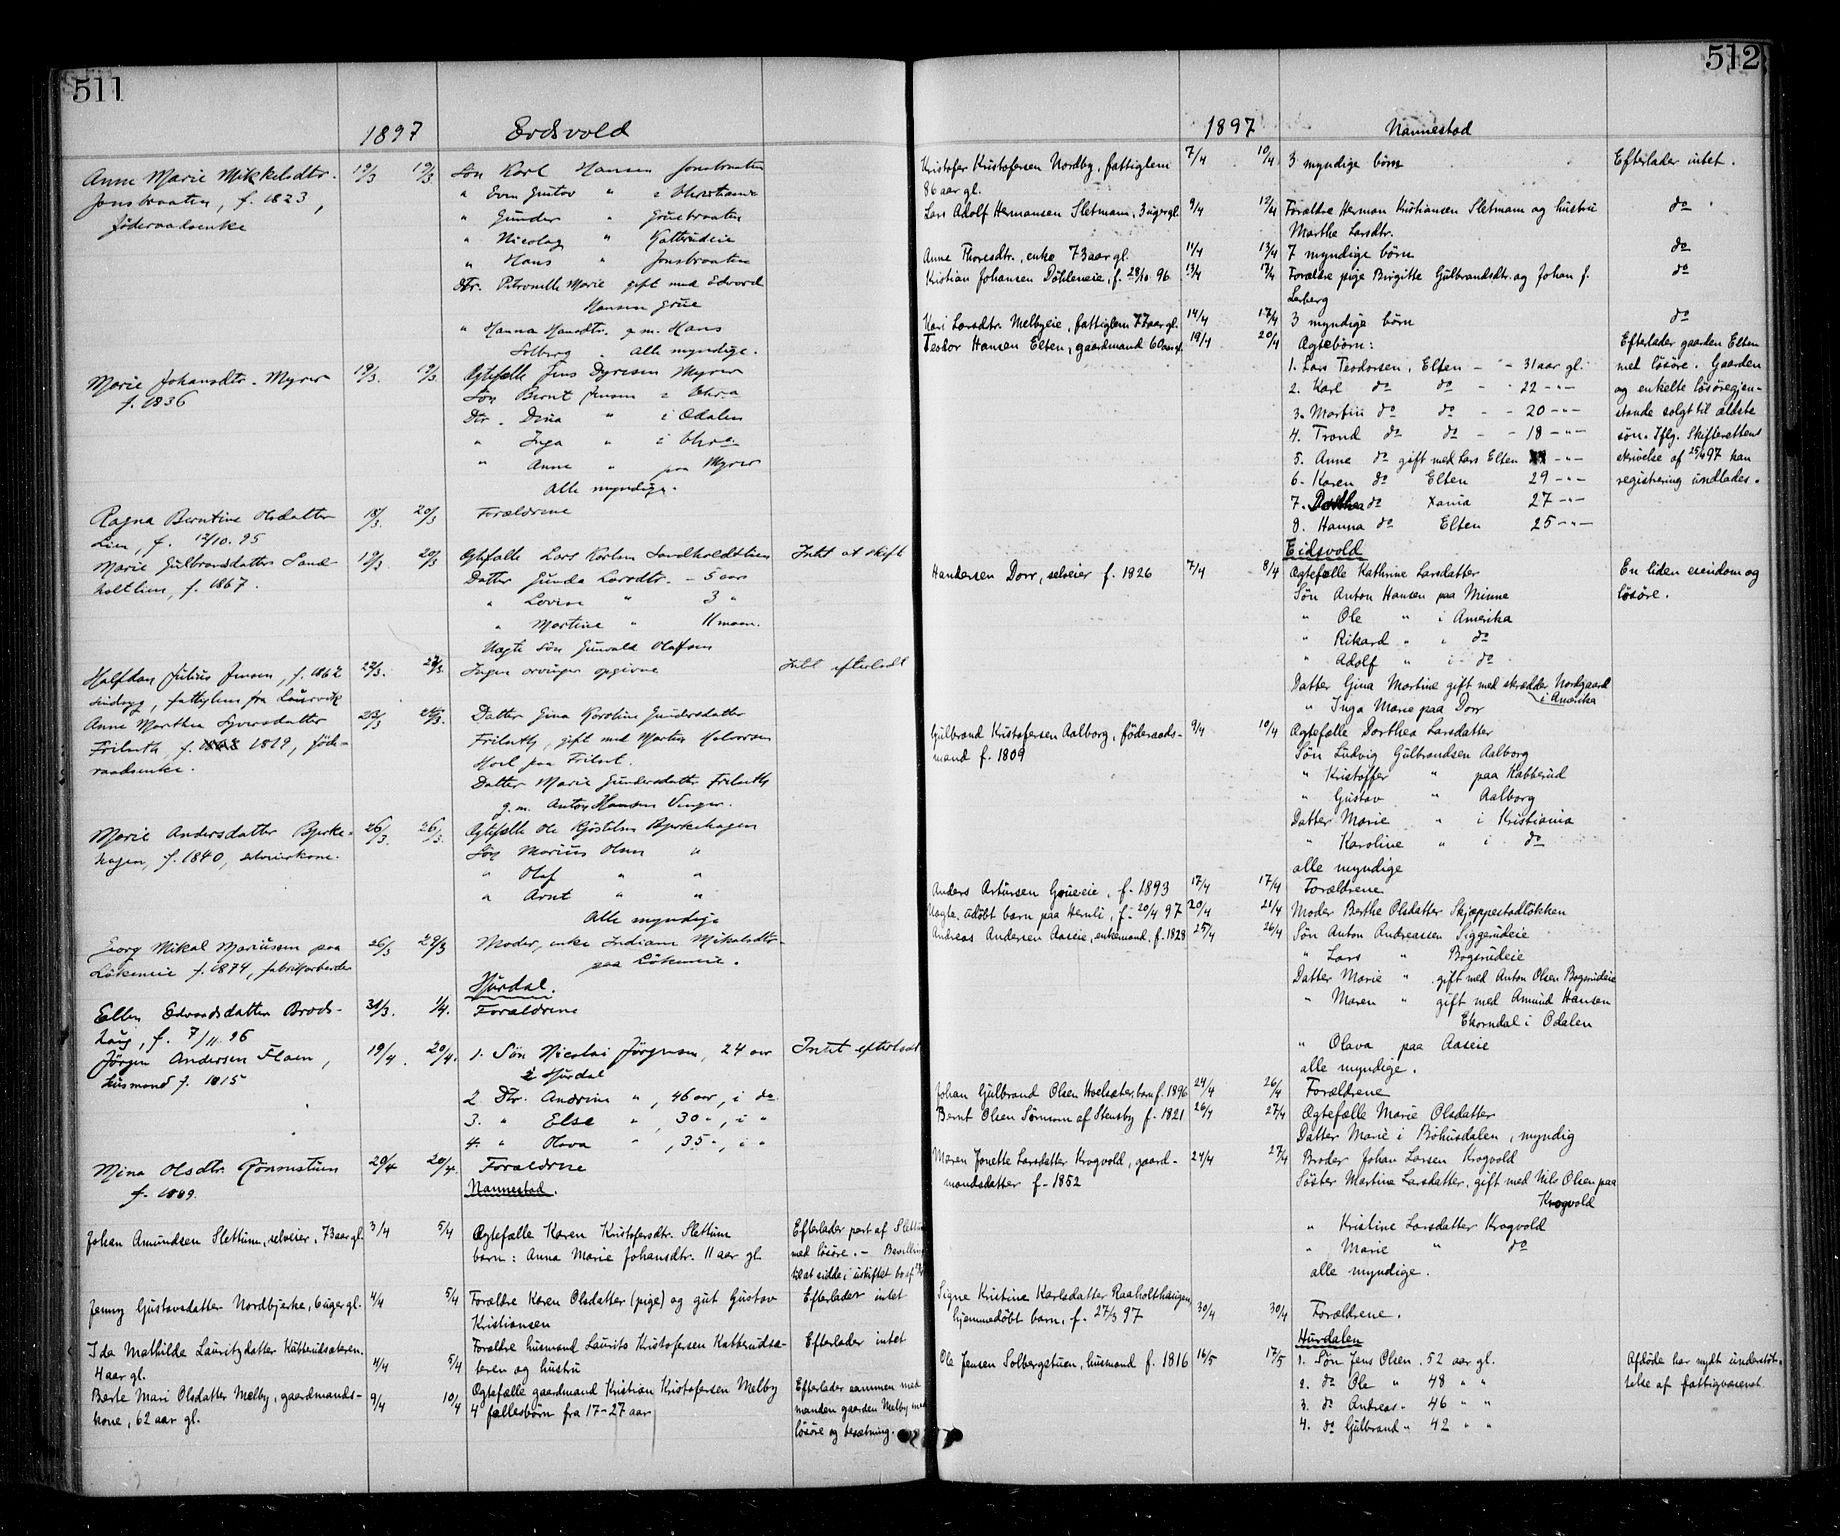 511
1897 Eidsvold
Anne Marie Mikkelsdtr. 19/3 19/3 Søn Karl Hansen Jonsbraaten
Jonsbraaten, f. 1823, " Even Gustav " i Christiania
føderaadsenke " Gunder " Gruebraaten
" Nicolay " Katterudeie
" Hans " Jonsbraaten
Dtr. Petronelle Marie gift med Edvard
Hansen Grue
" Hanna Hansdtr. g.m. Hans
Solberg. Alle myndige.
Marie Johansdtr. Myrer 19/3. 19/3 Ægtefælle Jens Dyresen Myrer
f. 1836 Søn Bernt Jensen i Chr.a
Dtr. Dina " i Odalen
" Inga " i Chra
" Anne " paa Myrer
Alle myndige.
Ragna Berntine Olsdatter 18/3. 20/3 Forældrene
Lien, f. 12/10. 95
Marie Gulbrandsdatter Sand- 19/3. 20/3 Ægtefælle Lars Karlsen Sandholdtlien Intet at skift
holtlien, f. 1867. Datter Gunda Larsdtr. - 5 aar
" Lovise " 3 "
" Martine " 11 maan.
Uægte Søn Gunvald Olafsen
Halfdan Julius Jensen, f. 1862 22/3. 23/3. Ingen arvinger opgivne Intet efterladt
sindsyg, fattiglem fra Laurvik
Anne Marthea Syversdatter 23/3 24/3. Datter Gina Karoline Gundersdatter
Frilseth, f. 1819, føde- Frilseth, gift med Martin Halvorsen
raadsenke. Hoel paa Frilset.
Datter Marie Gundersdatter Frilseth
g.m. Anton Hansen Vinger.
Marie Andersdatter Bjerke- 26/3. 26/3. Ægtefælle Ole Kjøstelsen Bjerkehagen
hagen, f. 1840, selveierkone. Søn Marius Olsen "
" Olaf " "
" Arnt " "
Alle myndige
Georg Mikal Mariussen paa 26/3 29/3 Moder, enke Indiane Mikalsdtr.
Løkeneie f. 1874, fabrikarbeider paa Løkeneie.
Hurdal.
Ellen Edvardsdatter Brods- 31/3. 1/4. Forældrene
haug, f. 7/11. 96
Jørgen Andersen Flaen, 19/4. 20/4. 1. Søn Nicolai Jørgensen, 24 aar Intet efterladt
husmand f. 1815 i Hurdal
2 Dtr. Andrine ", 46 aar, i do
3. " Else ", 30 ", i "
4. " Olava ", 35 ", i "
Mina Olsdtr. Rønnestuen 20/4. 20/4. Forældrene
f. 1889.
Nannestad.
Johan Amundsen Slettum, selveier, 73 aar gl. 3/4 5/4 Ægtefælle Karen Kristofersdtr. Slettum Efterlader part af Slettum
barn: Anna Marie Johansdtr. 11 aar gl. med løsøre. - Bevilling
til at sidde i uskiftet bo af
Jenny Gustavsdatter Nordbjerke, 6 uger gl. 4/4 5/4 Forældre Karen Olsdatter (pige) og gut Gustav Efterlader intet
Kristiansen
Ida Mathilde Lauritzdatter Katterudsæteren. Forældre husmand Laurits Kristofersen Katterudsæ- Efterlader intet
4 aar gl. 4/4 5/4 teren og hustru
Berte Mari Olsdatter Melby, gaardmands- 9/4 10/4 Ægtefælle gaardmand Kristian Kristofersen Melby Efterlader sammen med
kone, 62 aar gl. 4 fællesbørn fra 17-27 aar manden gaarden Melby med
løsøre og besætning.
512
1897 Nannestad
Kristofer Kristofersen Nordby, fattiglem 7/4 10/4 3 myndige børn Efterlader intet.
86 aar gl.
Lars Adolf Hermansen Sletmam, 3 uger gl. 9/4 12/4 Forældre Herman Kristiansen Sletmam og hustru do
Marthe Larsdtr.
Anne Thoresdtr., enke 73 aar gl. 11/4 13/4 7 myndige børn do
Kristian Johansen Døhleneie, f. 28/10 96 13/4 17/4 Forældre pige Birgitte Gulbrandsdtr. og Johan f. do
Lerberg
Kari Larsdtr. Melbyeie, fattiglem 77 aar gl. 14/4 17/4 3 myndige børn do
Teodor Hansen Elten, gaardmand 60 aar gl. 19/4 20/4 Ægtebørn: Efterlader gaarden Elten
1. Lars Teodorsen, Elten - - 31 aar gl. med løsøre. Gaarden
2. Karl do do - 22 - " - og enkelte løsøregjen-
3. Martin do do - - 20 - " - stande solgt til ældste
4. Trond do do - - 18 - " - søn. Iflg. Skifterettens
5. Anne do gift med Lars Elten - " - skrivelse af 25/4 97 kan
6. Karen do Elten 29 - " - registrering undlades.
7. Dorthea do Xania 27 - " -
8. Hanna do Elten 25 - " -
Eidsvold
Hans Larsen Dorr, selveier f. 1826 7/4 8/4 Ægtefælle Kathrine Larsdatter En liden eiendom og
Søn Anton Hansen paa Minne løsøre.
" Ole " i Amerika
" Rikard " i do
" Adolf " i do
Datter Gina Martine gift med skrædder Nordgaard
i Amerika
" Inga Marie paa Dorr
Gulbrand Kristofersen Aalborg, føderaads- 9/4 10/4 Ægtefælle Dorthea Larsdatter
mand f. 1809 Søn Ludvig Gulbrandsen Aalborg
" Kristoffer " paa Habberud
" Gustav " Aalborg
Datter Marie " i Kristiania
" Karoline " i do
alle myndige
Anders Artursen Grueeie, f. 1893 17/4 17/4 Forældrene
Uægte. udøbt barn paa Hernli, f. 20/4 97 20/4 21/4 Moder Berthe Olsdatter Skjæppestadløkken
Andreas Andersen Aaseie, enkemand, f. 1828 25/4 26/4 Søn Anton Andreassen Siggerudeie
" Lars " Bogsrudeie
Datter Marie " gift med Anton Olsen Bogsrudeie
" Maren " gift med Amund Hansen
Ekorndal i Odalen
" Olava paa Aaseie
alle myndige.
Johan Gulbrand Olsen Hoelsæter, barn f. 1896 24/4 26/4 Forældrene
Bernt Olsen Sørnom af Stensby f. 1821 26/4 27/4 Ægtefælle Marie Olsdatter
Datter Marie i Bøhusdalen, myndig
Maren Jonette Larsdatter Krogvold, gaard- 24/4 27/4 Broder Johan Larsen Krogvold
mandsdatter f. 1852 Søster Martine Larsdatter, gift med Nils Olsen paa
Krogvold
" Kristine Larsdatter Krogvold
" Marie " do
alle myndige.
Signe Kristine Karlsdatter Raaholthaugen
hjemmedøbt barn, f. 27/3 97 30/4 30/4 Forældrene.
Hurdalen
Ole Jensen Solbergstuen, husmand f. 1816 16/5 17/5 1. Søn Jens Olsen. 52 aar gl. Afdøde har nydt understøt-
2. do Ole " 48 " " telse af fattigvæsenet.
3. do Andreas " 46 " "
4. do Gulbrand " 42 " "